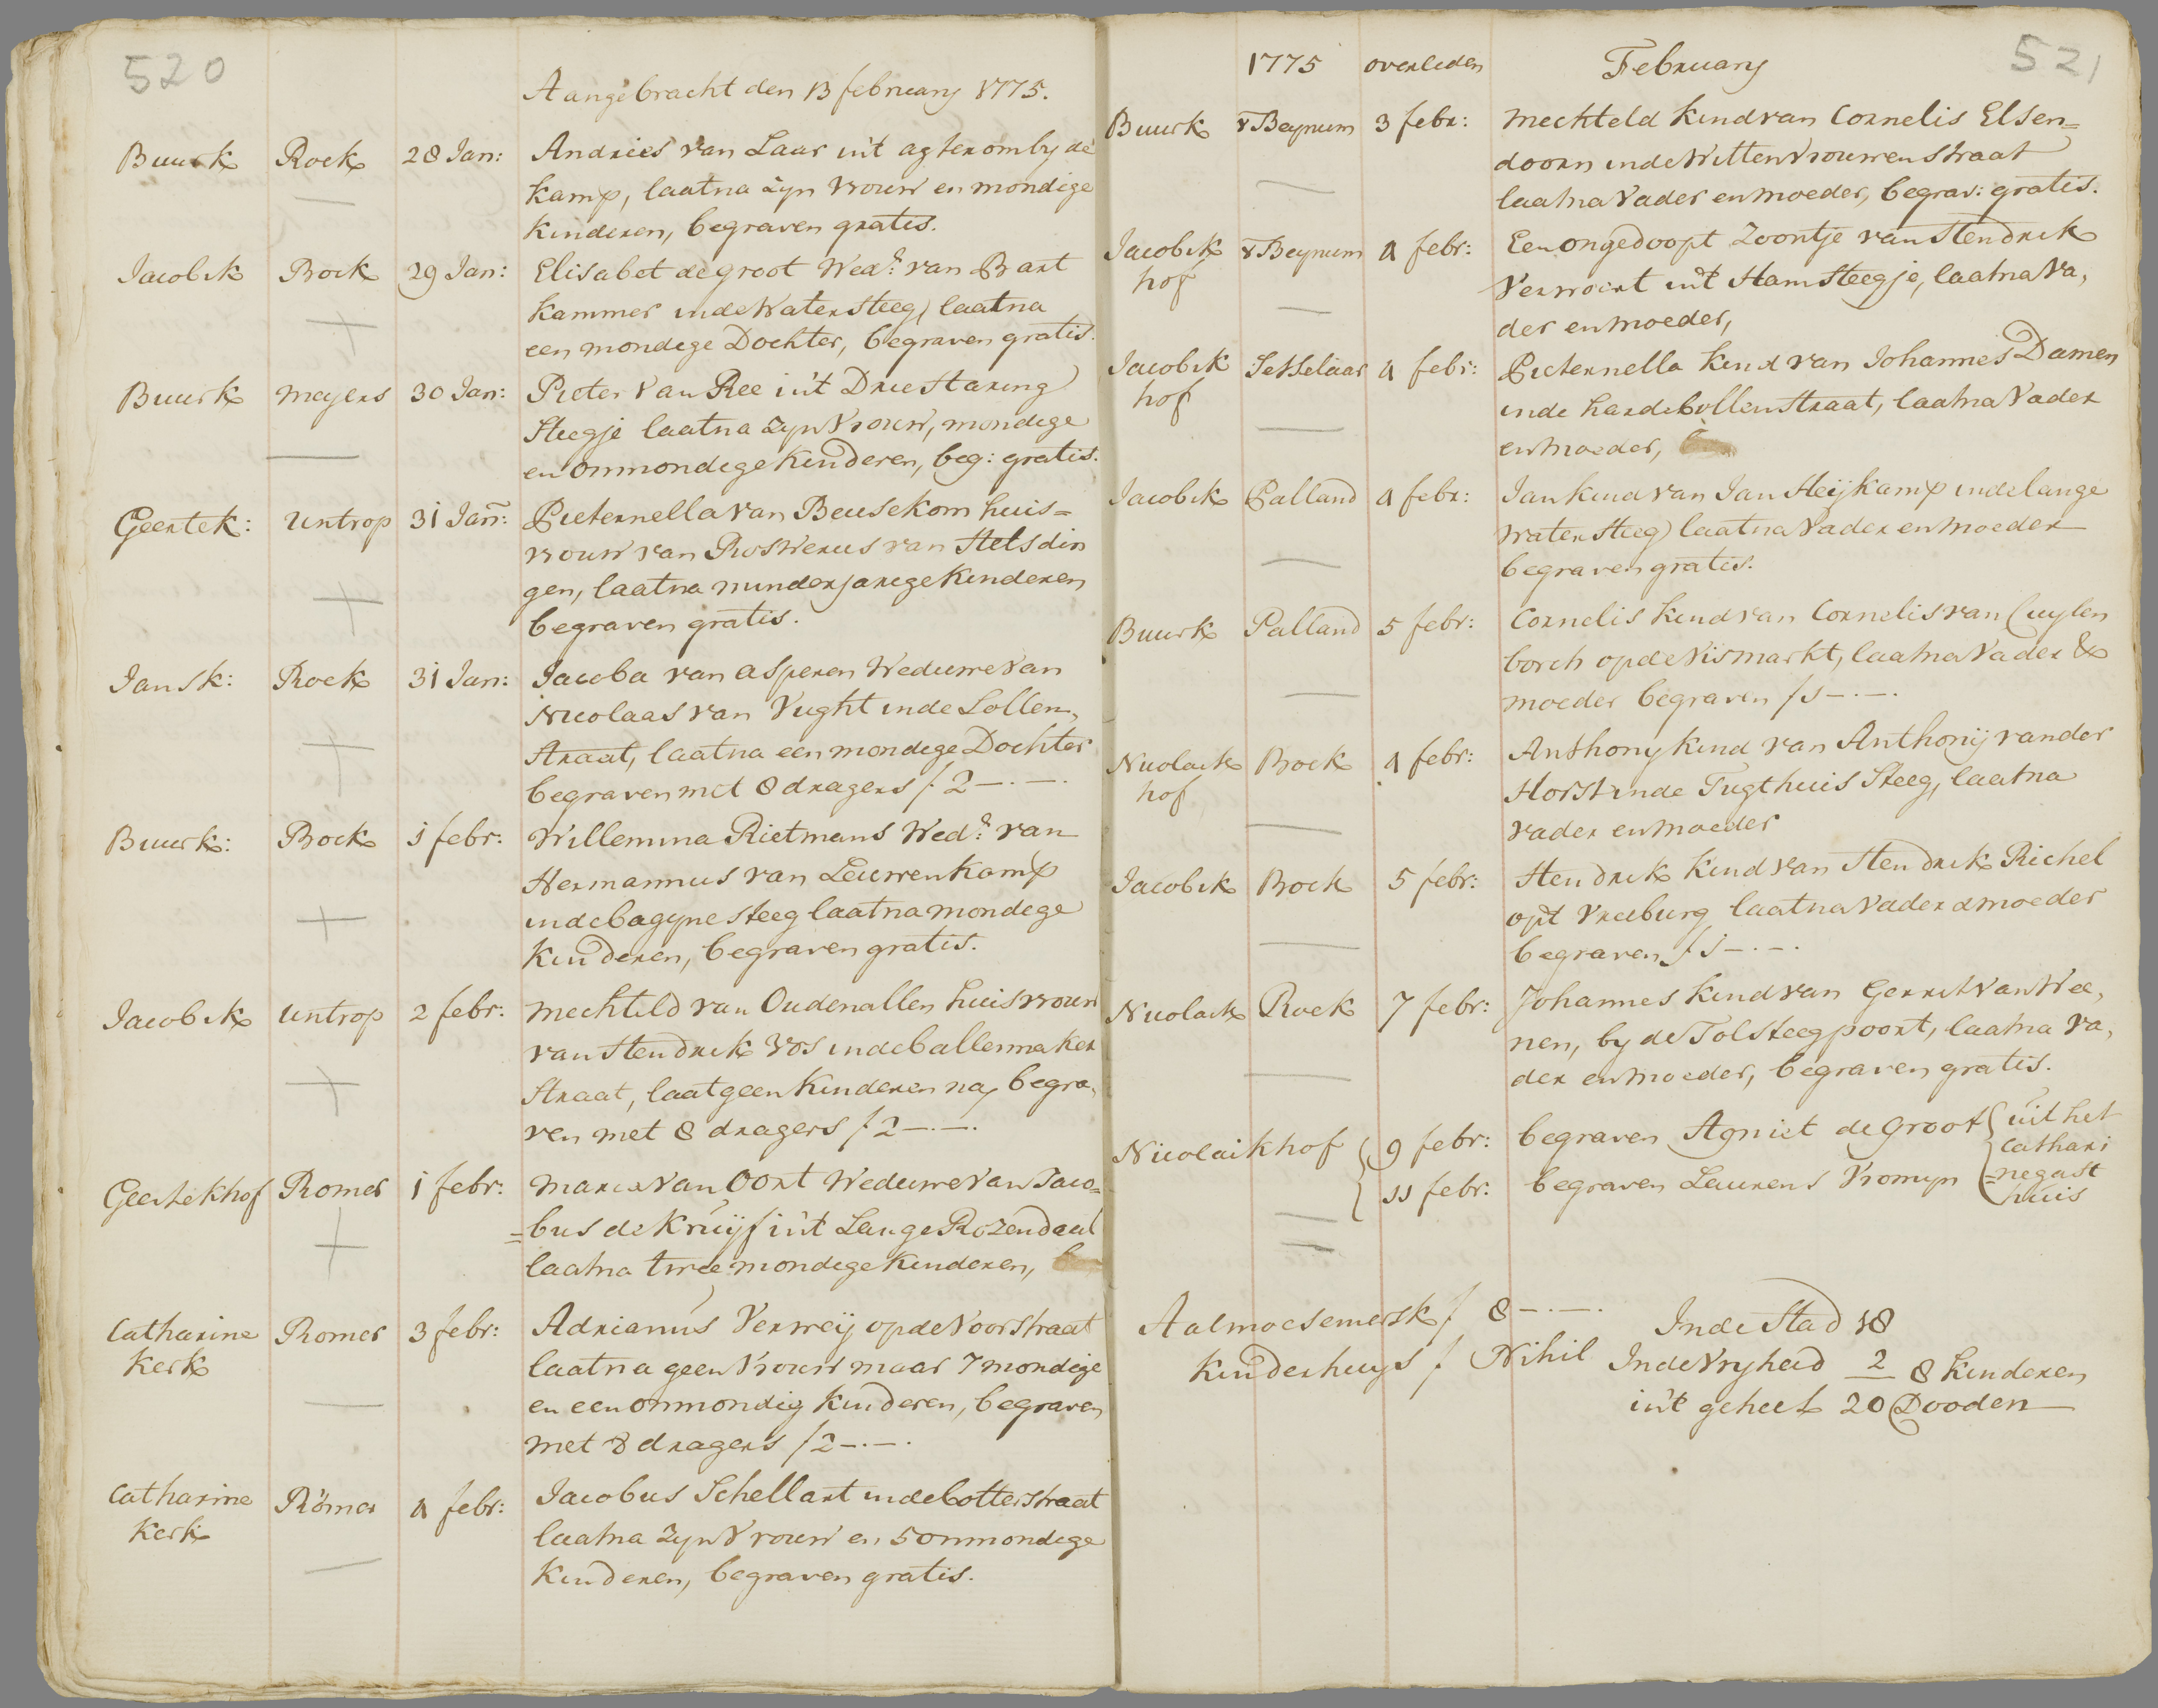 520
Aangebracht den 13 february 1775.
Buurk Roek 28 Jan: Andries van Laar in't agterom by de
kamp, laatna zyn vrouw en mondige
kinderen, begraven gratis.
Jacobik Bock 29 Jan: Elisabet de groot Wedr. van Bart
kammer inde Watersteeg, laatna
een mondige Dochter, begraven gratis.
Buurk Meyers 30 Jan: Pieter Van Ree in't Drie Haring
Steegje laatna zyn Vrouw, mondige
en onmondige kinderen, beg: gratis.
Geertek: Untrop 31 Jan: Pieternella van Beusekom huis=
vrouw van van Helsdin
gen, laatna minderjarige kinderen
begraven gratis.
Jansk: Roek 31 Jan: Jacoba van Asperen Weduwe van
Nicolaas van Vught inde Lollen,
Straat, laatna een mondige Dochter
begraven met 8 dragers f 2-.-.
Buurk: Bock 1 febr: Willemina Rietmans Wedr. van
Hermannus van Leuwenkamp
inde bagyne steeg laatna mondige
kinderen, begraven gratis.
Jacobik Untrop 2 febr: Mechteld van Oudenallen huisvrouw
van Hendrik Vos inde ballemaker
Straat, laat geen kinderen na, begra,
ven met 8 dragers f 2-.-.
Geertekhof Romer 1 febr: Maria van Oort Weduwe van Jaco=
=bus de Kruijf in't Lange Rozendaal
laatna twee mondige kinderen,
Catharine Romer 3 febr: Adrianus Verweij op de Voorstraat
kerk laatna geen Vrouw maar 7 mondige
en een onmondig kinderen, begraven
met 8 dragers f 2-.-.
Catharine Römer 4 febr: Jacobus Schellart inde botterstraat
kerk laatna zyn Vrouw en 5 onmondige
kinderen, begraven gratis.
1775 overleden February 521
Buurk v Beynum 3 febr: Mechteld kind van Cornelis Elsen=
doorn inde Wittevrouwenstraat
laatna Vader en moeder, begrav: gratis.
Jacobik v Beynum 4 febr: Een ongedoopt Zoontje van Hendrik
hof Verwoert uit Ham Steegje, laatna Va,
der en moeder,
Jacobik Setselaar 4 febr: Pieternella kind van Johannes Damen
hof inde hardebollenstraat, laatna Vader
en moeder,
Jacobik Palland 4 febr: Jan kind van Jan Heijkamp inde lange
watersteeg, laatna Vader en moeder
begraven gratis.
Buurk Palland 5 febr: Cornelis kind van Cornelis van Cuylen
borch op de Vismarkt, laatna Vader &
moeder begraven f 5-.-.
Nicolaik Bock 4 febr: Anthony kind van Anthonij vander
hof Horst inde Tugthuis Steeg, laatna
vader en moeder
Jacobik Bock 5 febr: Hendrik kind van Hendrik Richel
op't Vreeburg laatna Vader & moeder
begraven f 5-.-.
Nicolaik Roek 7 febr: Johannes kind van Gerrit van Wee,
nen, by de Tolsteegpoort, laatna va,
der en moeder, begraven gratis.
Nicolaikhof 9 febr: begraven Agniet de Groot uit het
Cathari
11 febr: begraven Laurens Vromyn =negast
huis
Aalmoesenierск f 8-.-. Inde Stad 18
Kinderhuys f Nihil Inde Vryheid 2 8 kinderen
in't geheel 20 Dooden